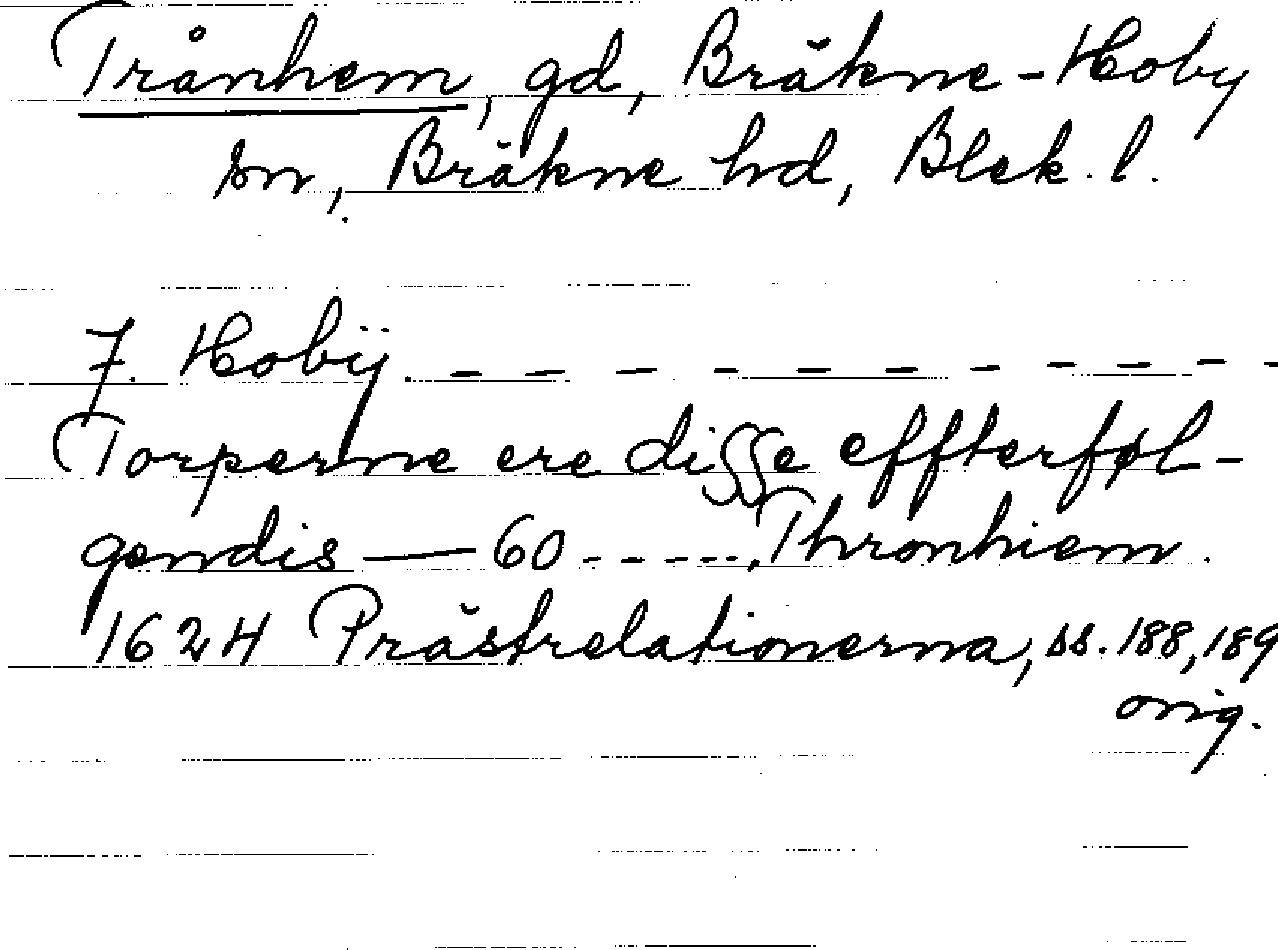 Trånhem, gd, Bräkne-Hoby
sn, Bräkne hd, Blek. l.
7. Hobÿ. - - - - - - - - - -
Torperne ere disse effterføl-
gendis — 60 - - - - -, Thronhiem.
1624 Prästrelationerna, ss. 188, 189
orig.